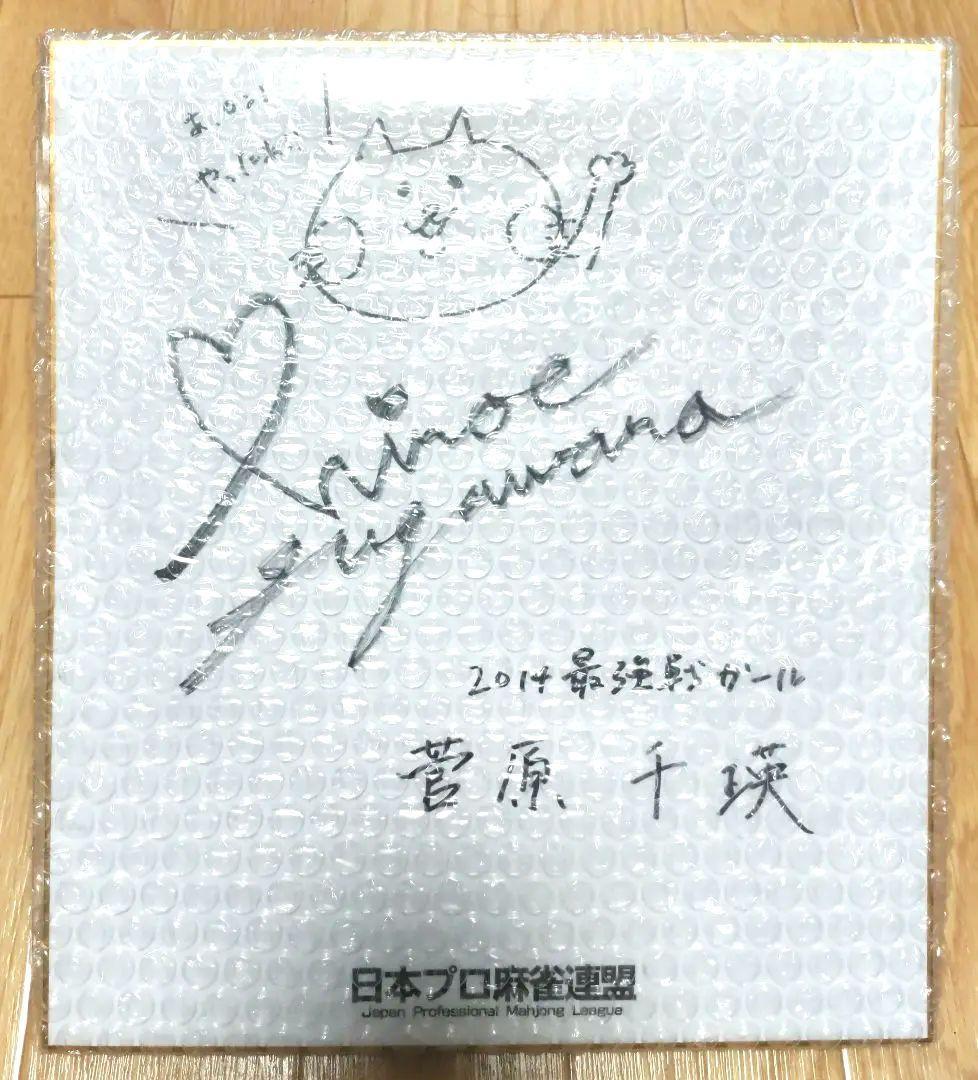 Chinoe
sugawara
2014最強戦ガール
菅原 千瑛
日本プロ麻雀連盟
Japan Professional Mahjong League